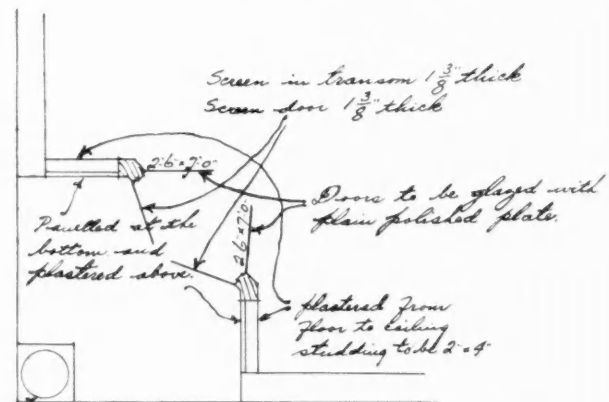 Screen in transom 1 3/8" thick
Screen door 1 3/8" thick
2'-6" × 7'-0"
Doors to be glazed with
plain polished plate.
2'-6" × 7'-0"
Panelled at the
bottom and
plastered above.
plastered from
Floor to ceiling
studding to be 2" × 4"